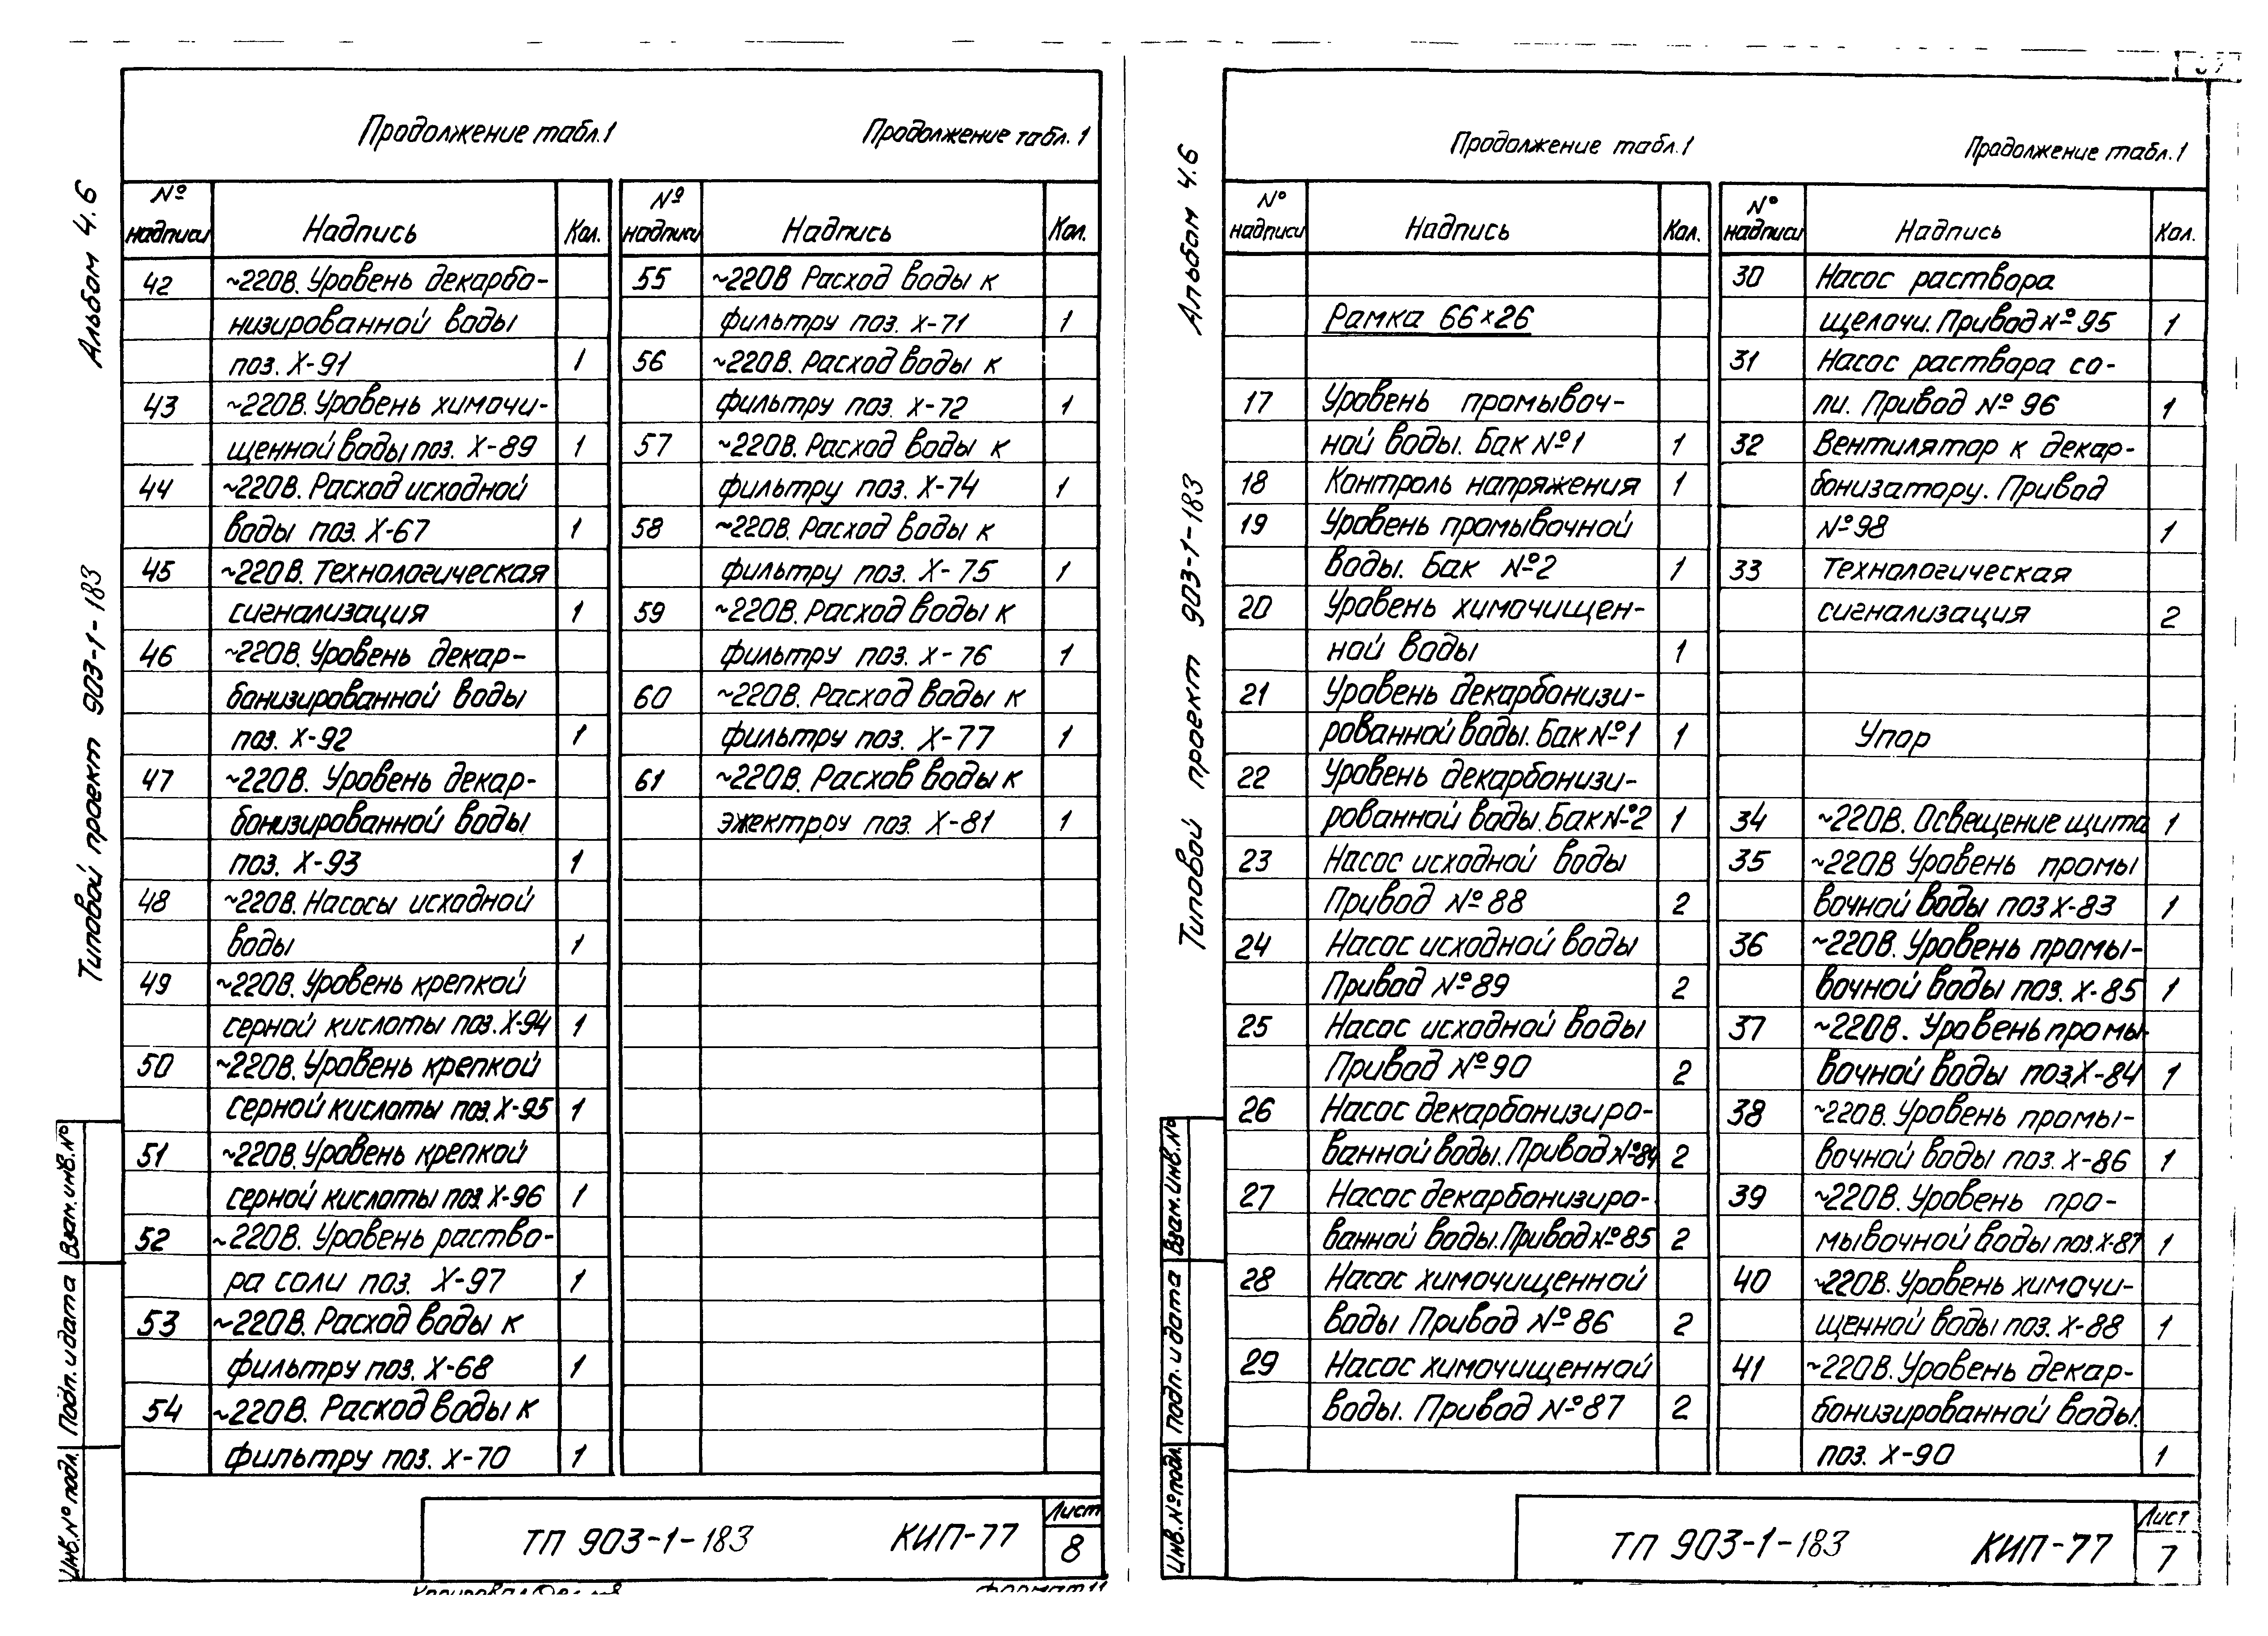 Альбом 4.6
Типовой проект 903-1-183
Взам.инв.№
Подп. и дата
Инв.№ подл.
Продолжение табл.1
Продолжение табл. 1
№ надписи Надпись Кол.
42 ~220В. Уровень декарбо-
низированной воды
поз. Х-91 1
43 ~220В. Уровень химочи-
щенной воды поз. Х-89 1
44 ~220В. Расход исходной
воды поз. Х-67 1
45 ~220В. Технологическая
сигнализация 1
46 ~220В. Уровень декар-
бонизированной воды
поз. Х-92 1
47 ~220В. Уровень декар-
бонизированной воды
поз. Х-93 1
48 ~220В. Насосы исходной
воды 1
49 ~220В. Уровень крепкой
серной кислоты поз. Х-94 1
50 ~220В. Уровень крепкой
серной кислоты поз. Х-95 1
51 ~220В. Уровень крепкой
серной кислоты поз Х-96 1
52 ~220В. Уровень раство-
ра соли поз. Х-97 1
53 ~220В. Расход воды к
фильтру поз. Х-68 1
54 ~220В. Расход воды к
фильтру поз. Х-70 1
№ надписи Надпись Кол.
55 ~220В Расход воды к
фильтру поз. Х-71 1
56 ~220В. Расход воды к
фильтру поз. Х-72 1
57 ~220В. Расход воды к
фильтру поз. Х-74 1
58 ~220В. Расход воды к
фильтру поз. Х-75 1
59 ~220В. Расход воды к
фильтру поз. Х-76 1
60 ~220В. Расход воды к
фильтру поз. Х-77 1
61 ~220В. Расхов воды к
эжектроу поз. Х-81 1
ТП 903-1-183 КИП-77
Лист
8
Копировал
Формат 11
Альбом 4.6
Типовой проект 903-1-183
Взам.инв.№
Подп. и дата
Инв.№ подл.
Продолжение табл.1
Продолжение табл.1
№ надписи Надпись Кол.
Рамка 66×26
17 Уровень промывоч-
ной воды. Бак №1 1
18 Контроль напряжения 1
19 Уровень промывочной
воды. Бак №2 1
20 Уровень химочищен-
ной воды 1
21 Уровень декарбонизи-
рованной воды. Бак №1 1
22 Уровень декарбонизи-
рованной воды. Бак №2 1
23 Насос исходной воды
Привод №88 2
24 Насос исходной воды
Привод №89 2
25 Насос исходной воды
Привод №90 2
26 Насос декарбонизиро-
ванной воды. Привод №84 2
27 Насос декарбонизиро-
ванной воды. Привод №85 2
28 Насос химочищенной
воды Привод №86 2
29 Насос химочищенной
воды. Привод №87 2
№ надписи Надпись Кол.
30 Насос раствора
щелочи. Привод №95 1
31 Насос раствора со-
ли. Привод №96 1
32 Вентилятор к декар-
бонизатору. Привод
№98 1
33 Технологическая
сигнализация 2
Упор
34 ~220В. Освещение щита 1
35 ~220В Уровень промы
вочной воды поз Х-83 1
36 ~220В. Уровень промы-
вочной воды поз. Х-85 1
37 ~220В. Уровень промы-
вочной воды поз. Х-84 1
38 ~220В. Уровень промы-
вочной воды поз. Х-86 1
39 ~220В. Уровень про-
мывочной воды поз. Х-87 1
40 ~220В. Уровень химочи-
щенной воды поз. Х-88 1
41 ~220В. Уровень декар-
бонизированной воды.
поз. Х-90 1
ТП 903-1-183 КИП-77
Лист
7